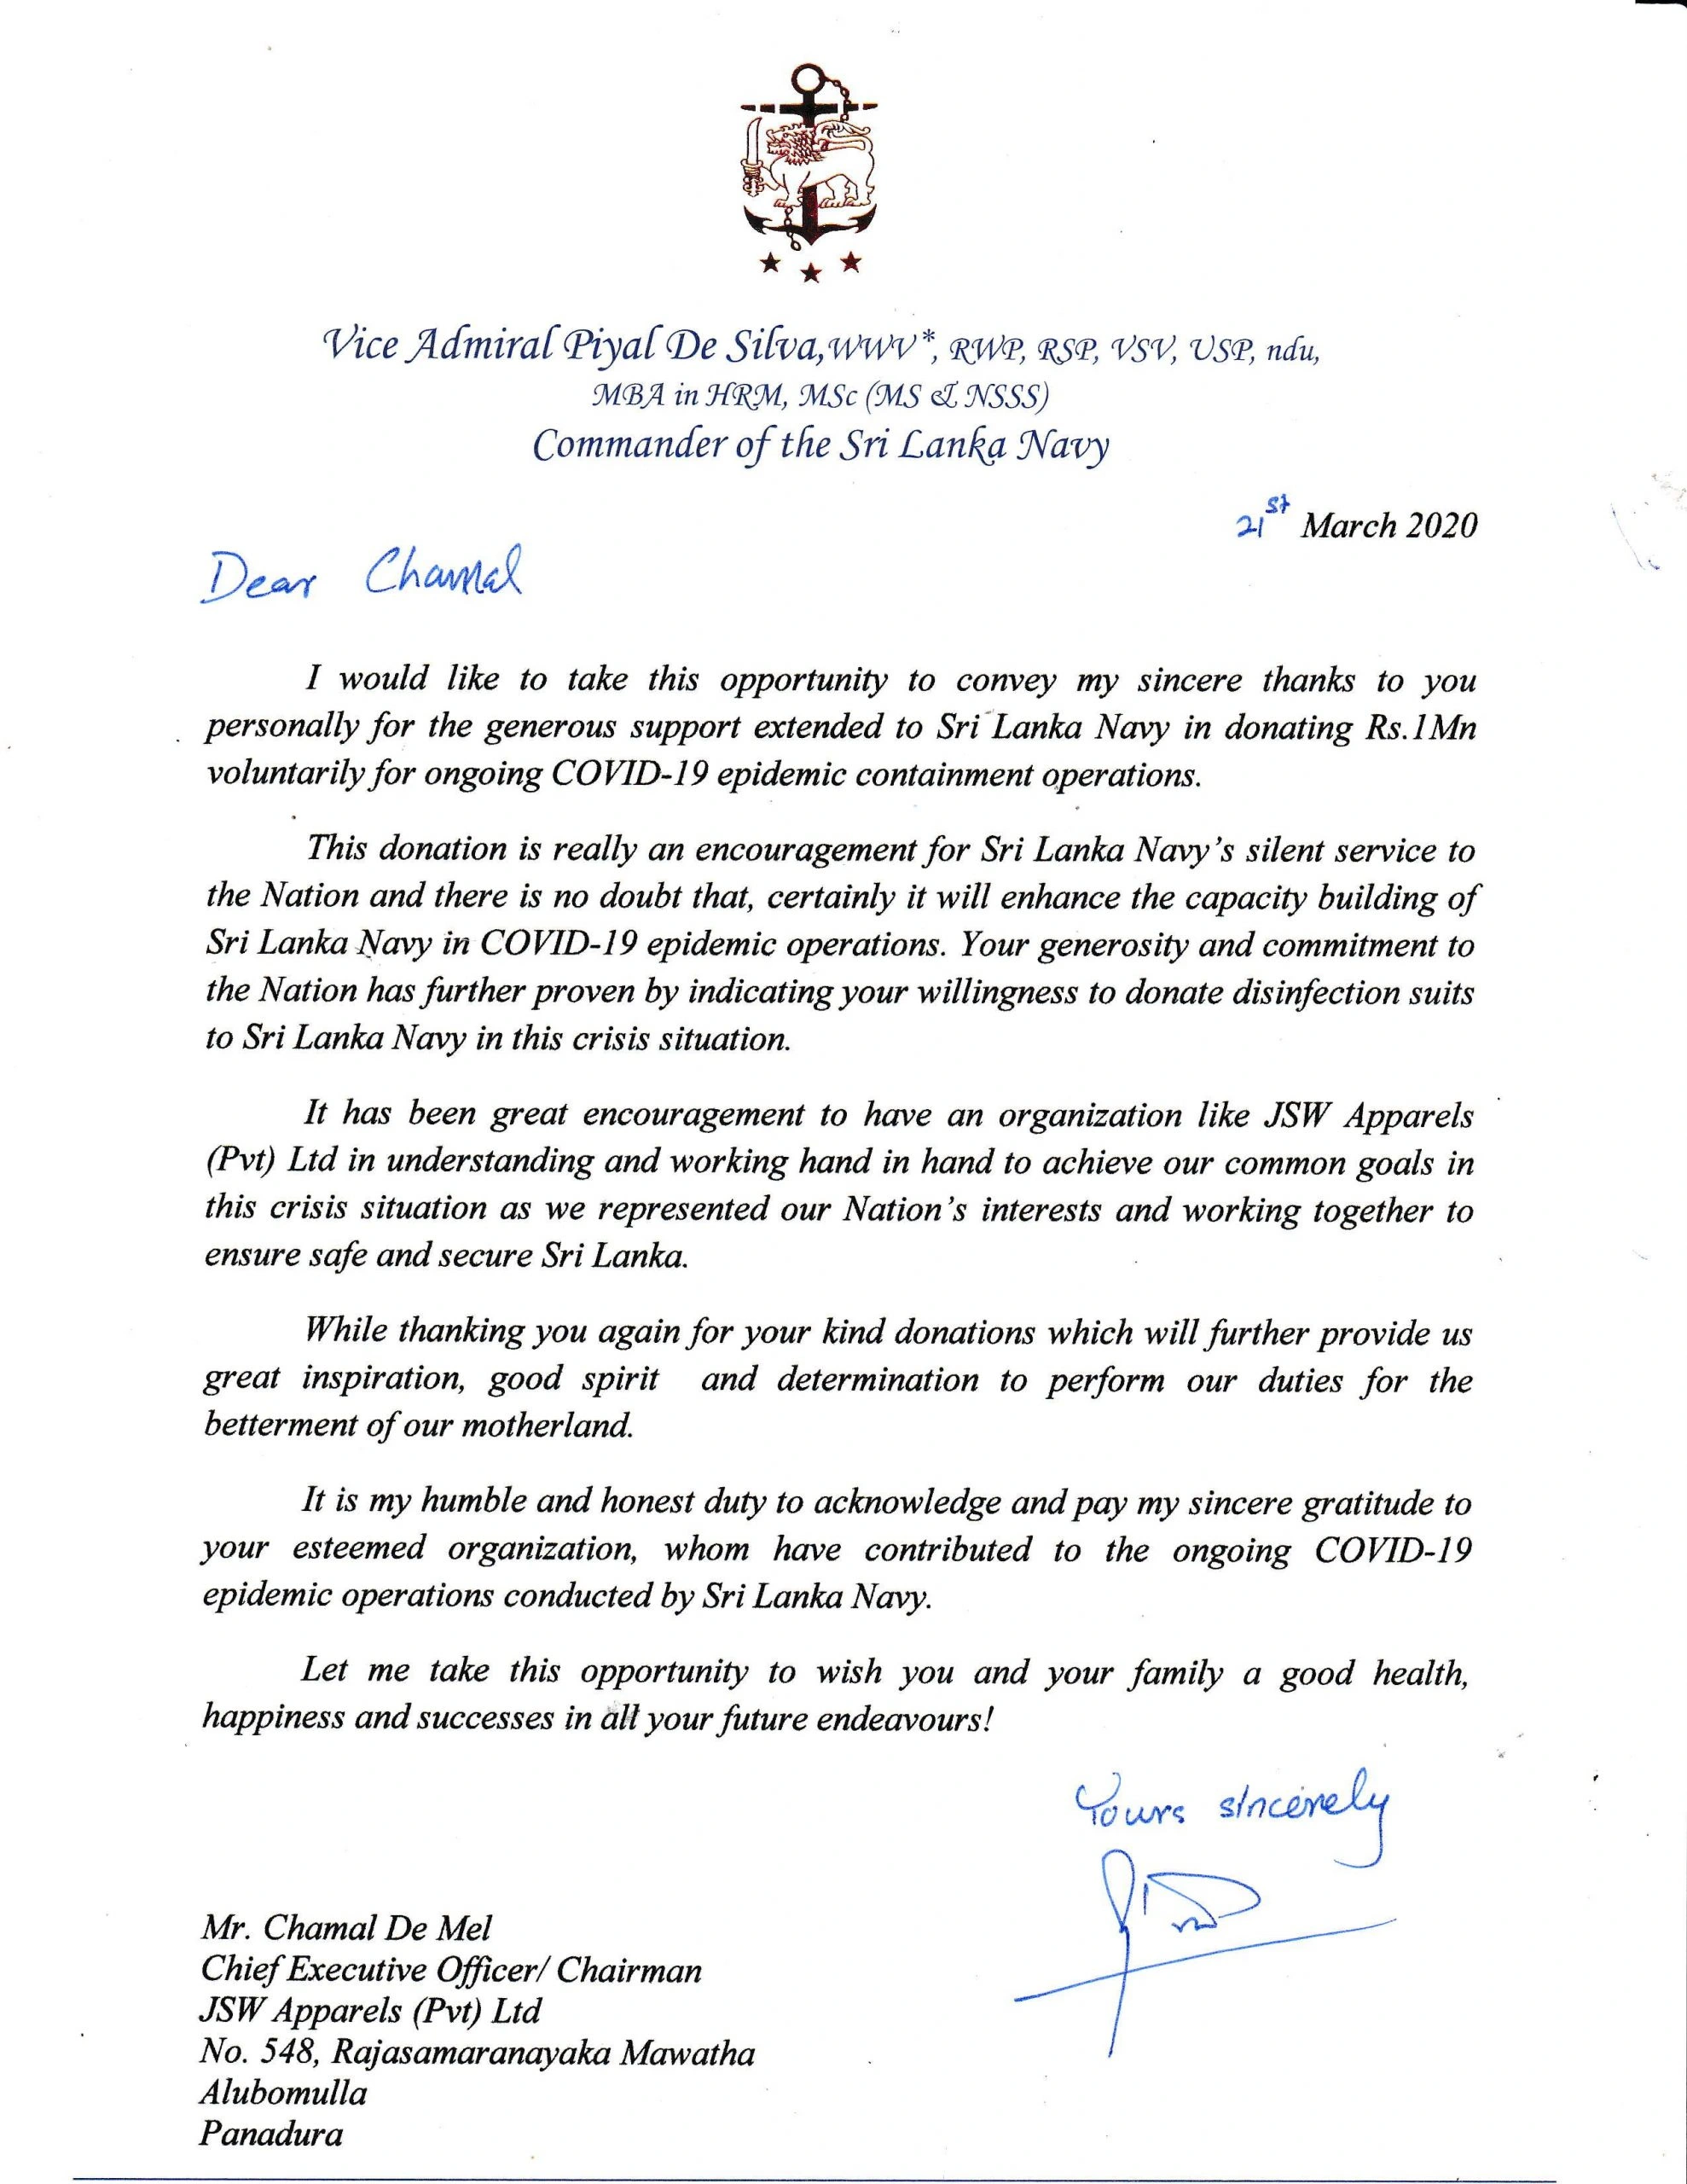 Vice Admiral Piyal De Silva,WWV*, RWP, RSP, VSV, USP, ndu,
MBA in HRM, MSc (MS & NSSS)
Commander of the Sri Lanka Navy
21st March 2020
Dear Chamal
I would like to take this opportunity to convey my sincere thanks to you
personally for the generous support extended to Sri Lanka Navy in donating Rs.1Mn
voluntarily for ongoing COVID-19 epidemic containment operations.
This donation is really an encouragement for Sri Lanka Navy's silent service to
the Nation and there is no doubt that, certainly it will enhance the capacity building of
Sri Lanka Navy in COVID-19 epidemic operations. Your generosity and commitment to
the Nation has further proven by indicating your willingness to donate disinfection suits
to Sri Lanka Navy in this crisis situation.
It has been great encouragement to have an organization like JSW Apparels
(Pvt) Ltd in understanding and working hand in hand to achieve our common goals in
this crisis situation as we represented our Nation's interests and working together to
ensure safe and secure Sri Lanka.
While thanking you again for your kind donations which will further provide us
great inspiration, good spirit and determination to perform our duties for the
betterment of our motherland.
It is my humble and honest duty to acknowledge and pay my sincere gratitude to
your esteemed organization, whom have contributed to the ongoing COVID-19
epidemic operations conducted by Sri Lanka Navy.
Let me take this opportunity to wish you and your family a good health,
happiness and successes in all your future endeavours!
Yours sincerely
Mr. Chamal De Mel
Chief Executive Officer/ Chairman
JSW Apparels (Pvt) Ltd
No. 548, Rajasamaranayaka Mawatha
Alubomulla
Panadura